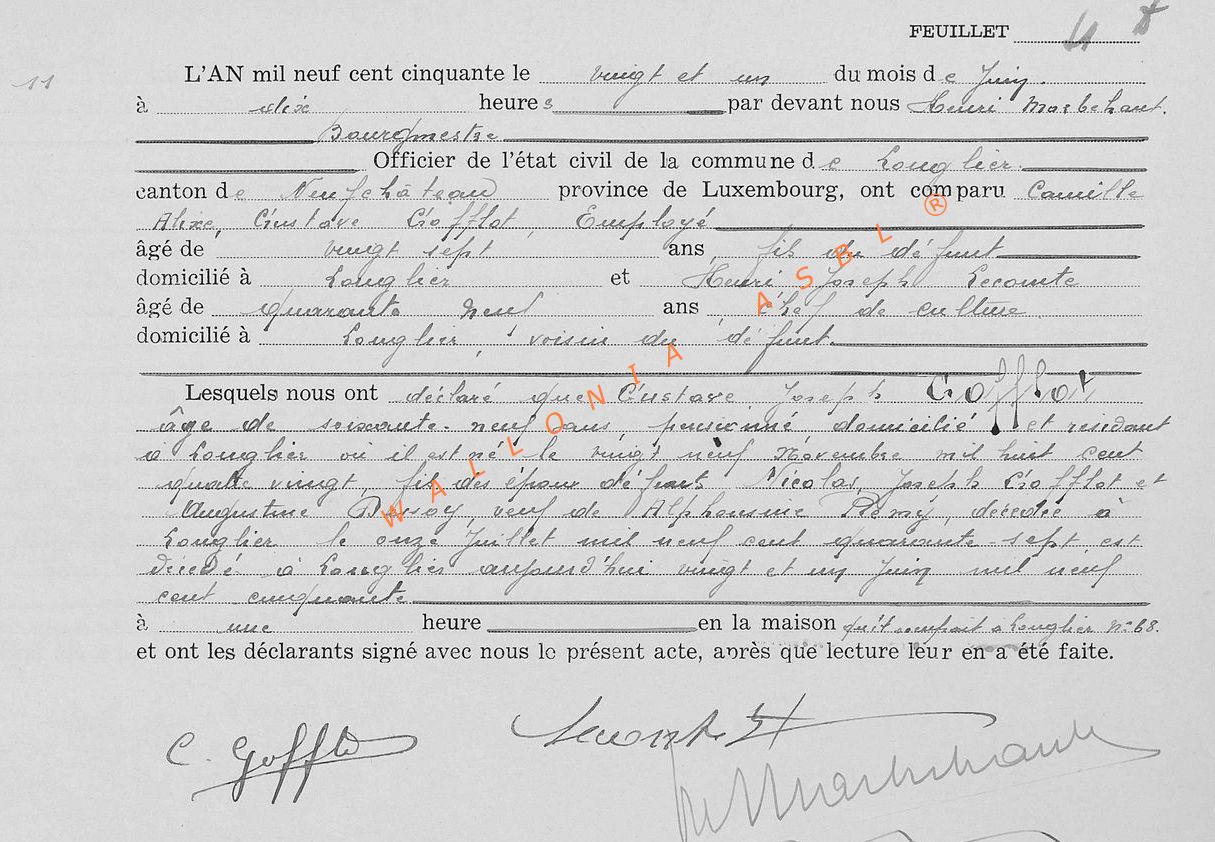 FEUILLET
11
L'AN mil neuf cent cinquante le vingt et un du mois de Juin.
à dix heures par devant nous Henri Marbehant.
Bourgmestre
Officier de l'état civil de la commune de Longlier.
canton de Neufchâteau province de Luxembourg, ont comparu Camille
Alixe, Gustave Gofflot, Employé
âgé de vingt sept ans, fils du défunt
domicilié à Longlier et Henri Joseph Lecomte
âgé de quarante neuf ans chef de culture
domicilié à Longlier, voisin du défunt.
Lesquels nous ont déclaré que Gustave, Joseph Gofflot
âgé de soixante-neuf ans, pensionné domicilié et résidant
à Longlier où il est né le vingt neuf Novembre mil huit cent
quatre vingt, fils des époux défunts Nicolas, Joseph Gofflot et
Augustine, veuf de Alphonsine Remy, décédée à
Longlier le onze Juillet mil neuf cent quarante-sept est
décédé à Longlier aujourd'hui vingt et un Juin mil neuf
cent cinquante.
à une heure en la maison qu'il occupait à Longlier N° 68.
et ont les déclarants signé avec nous le présent acte, après que lecture leur en a été faite.
C. Gofflot
Lecomte H
Marbehant
WALLONIA ASBL ®